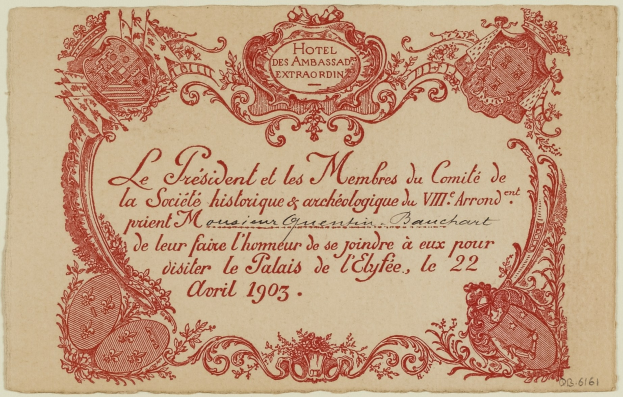 HOTEL
DES AMBASSADRS
EXTRAORDINRES
Le Président et les Membres du Comité de
la Société historique & archéologique du VIIIe. Arrondent.
prient Monsieur Quentin-Bauchart
de leur faire l'honneur de se joindre à eux pour
visiter le Palais de l'Elysée, le 22
Avril 1903.
QB-6161